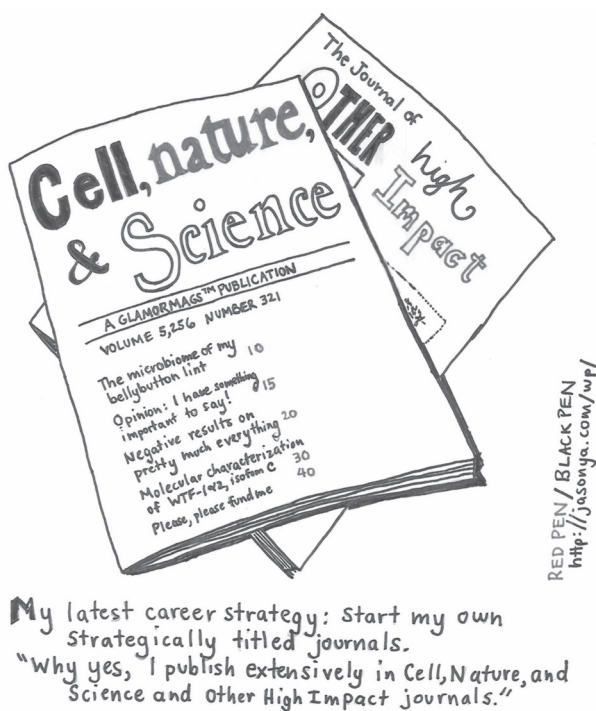 The Journal of
OTHER
high
Impact
Cell, nature,
& Science
A GLAMORMAGS™ PUBLICATION
VOLUME 5,256 NUMBER 321
The microbiome of my 10
bellybutton lint
Opinion: I have something 15
important to say!
Negative results on 20
pretty much everything
Molecular characterization 30
of WTF-1α2, isoform C 40
Please, please fund me
RED PEN/BLACK PEN
http://jasonya.com/wp/
My latest career strategy: Start my own
strategically titled journals.
"Why yes, I publish extensively in Cell, Nature, and
Science and Other High Impact journals."